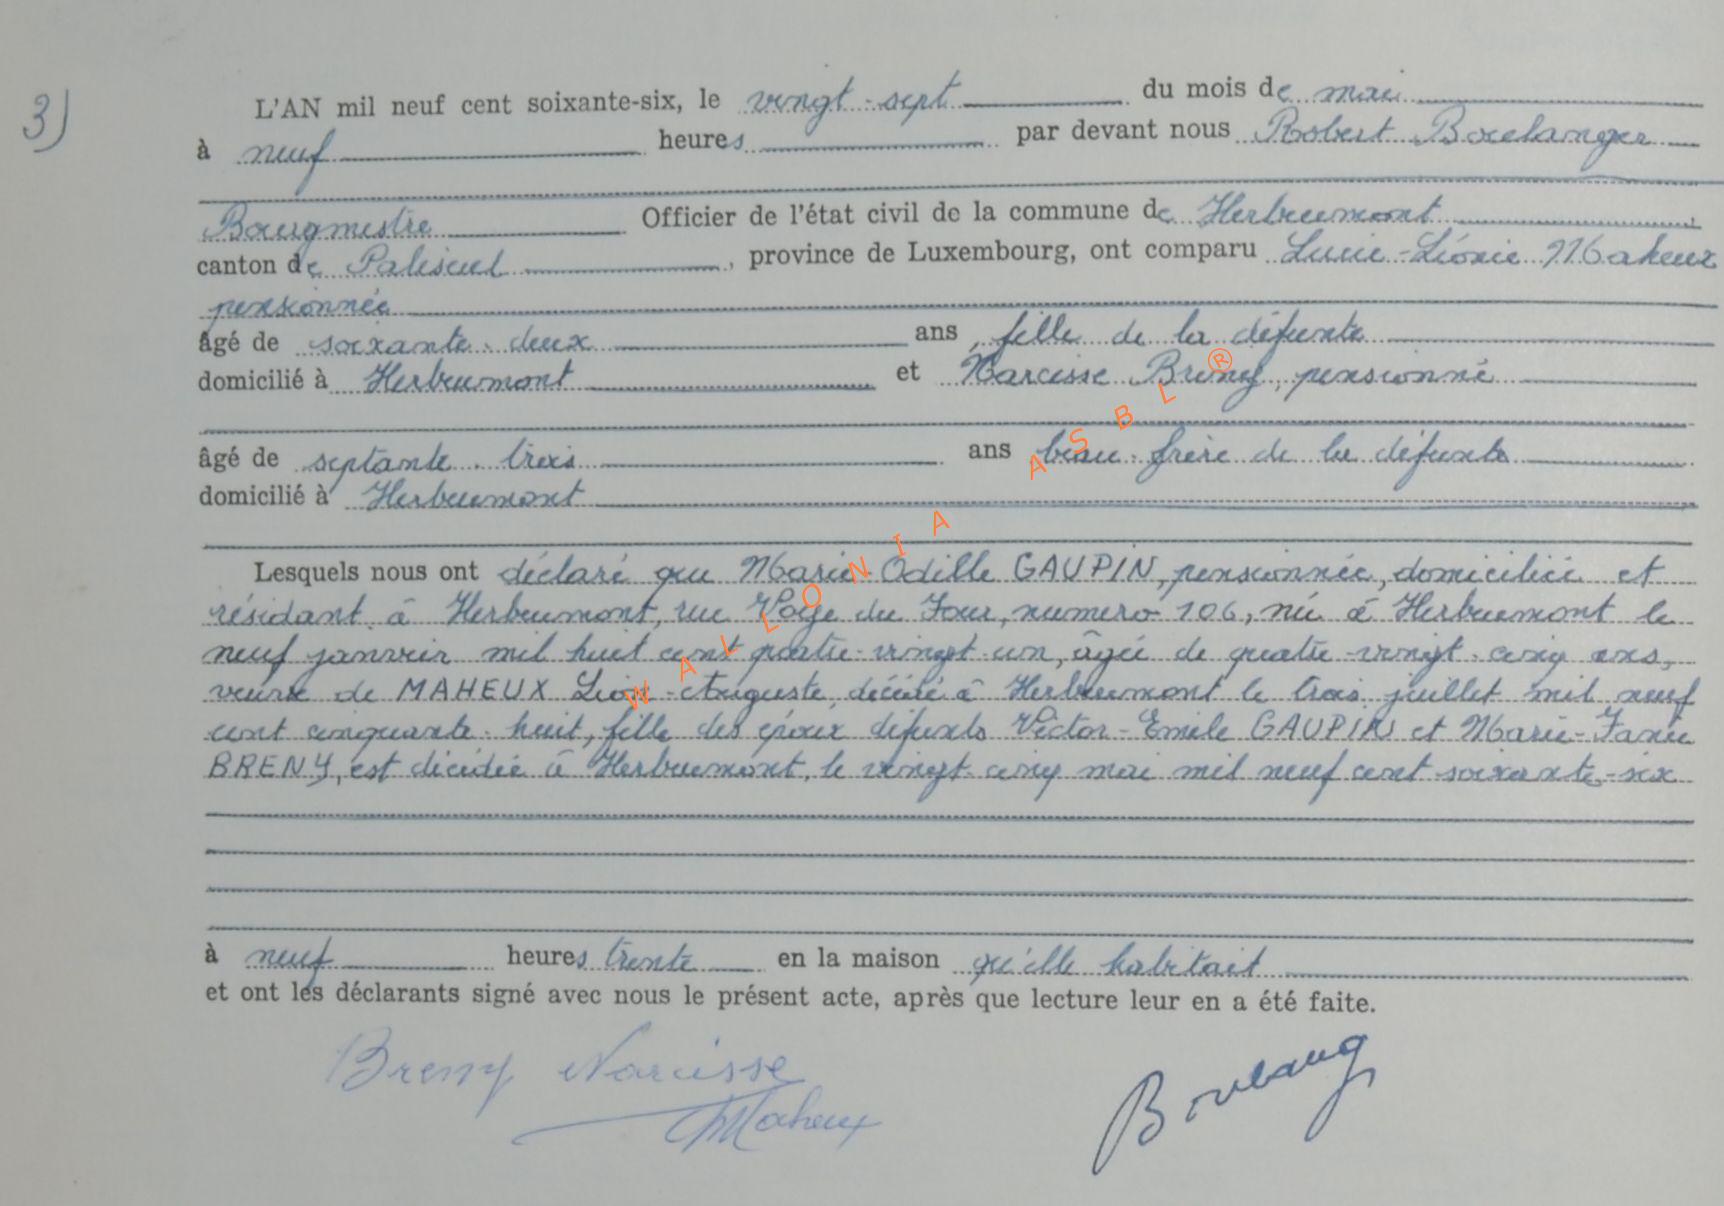 3)
L'AN mil neuf cent soixante-six, le vingt-sept du mois de mai
à neuf heures par devant nous Robert Boulanger
Bourgmestre Officier de l'état civil de la commune de Herbeumont
canton de Paliseul, province de Luxembourg, ont comparu Lucie-Léonie Maheux
pensionnée
âgé de soixante-deux ans, fille de la défunte
domicilié à Herbeumont et Narcisse Breny, pensionné
âgé de septante-trois ans beau-frère de la défunte
domicilié à Herbeumont
Lesquels nous ont déclaré que Marie-Odille GAUPIN, pensionnée, domiciliée et
résidant à Herbeumont, rue du Four, numero 106, née à Herbeumont le
neuf janvier mil huit cent quatre-vingt-un, âgée de quatre-vingt-cinq ans,
veuve de MAHEUX Léon-Auguste, décédé à Herbeumont le trois juillet mil neuf
cent cinquante-huit, fille des époux défunts Victor-Emile GAUPIN et Marie-Fanie
BRENY, est décédée à Herbeumont, le vingt-cinq mai mil neuf cent soixante-six
à neuf heures trente en la maison qu'elle habitait
et ont les déclarants signé avec nous le présent acte, après que lecture leur en a été faite.
Breny Narcisse
Maheux
Boulang
WALLONIA ASBL®